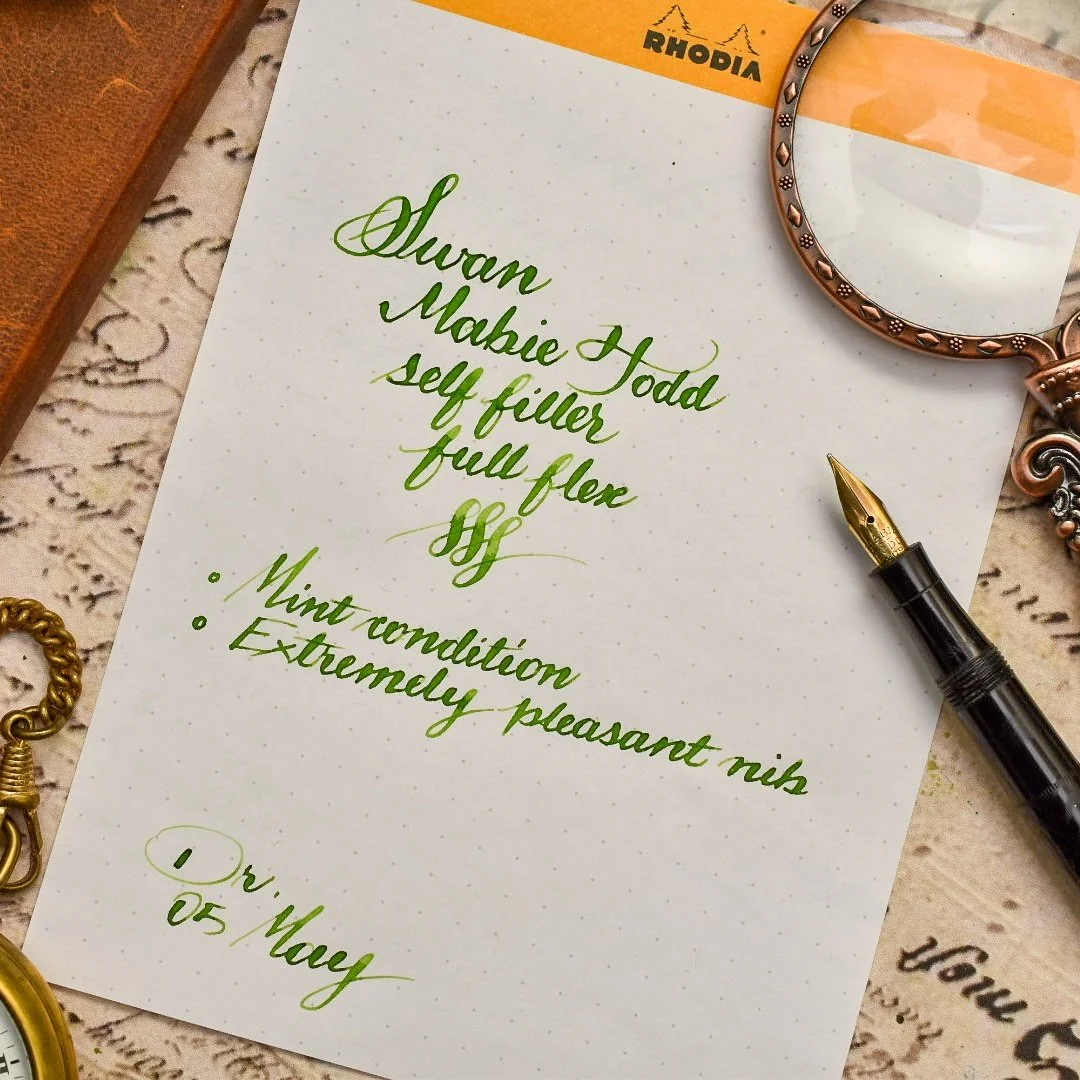 RHODIA
Swan
Mabie Todd
self filler
full flex
SSS
• Mint condition
• Extremely pleasant nib
Dr.
05 May